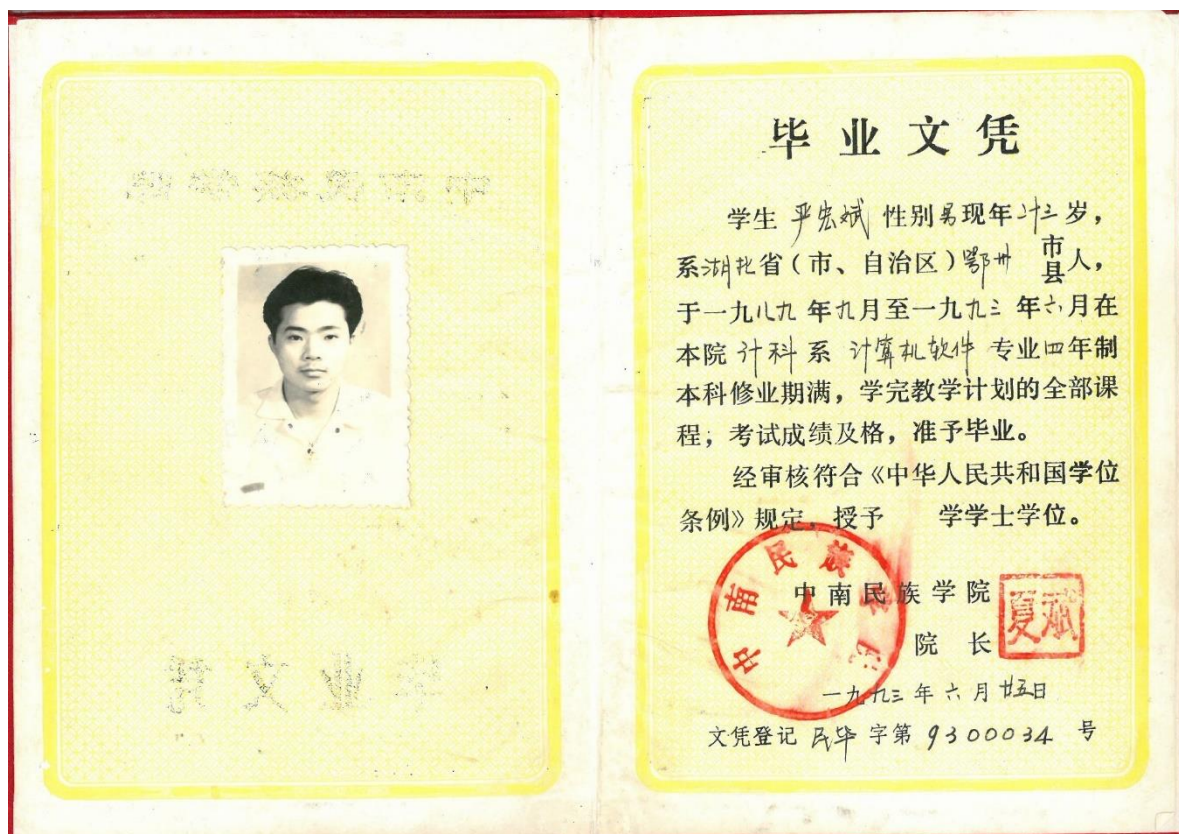 中南民族学院
毕业文凭
毕业文凭
学生 严宏斌 性别男现年廿三岁，
系湖北省（市、自治区）鄂州 市县人，
于一九八九年九月至一九九三年六月在
本院 计科 系 计算机软件 专业四年制
本科修业期满，学完教学计划的全部课
程，考试成绩及格，准予毕业。
经审核符合《中华人民共和国学位
条例》规定，授予 学学士学位。
中南民族学院
中南民族学院
院 长
夏斌
一九九三年六月廿五日
文凭登记 民毕 字第 9300034 号